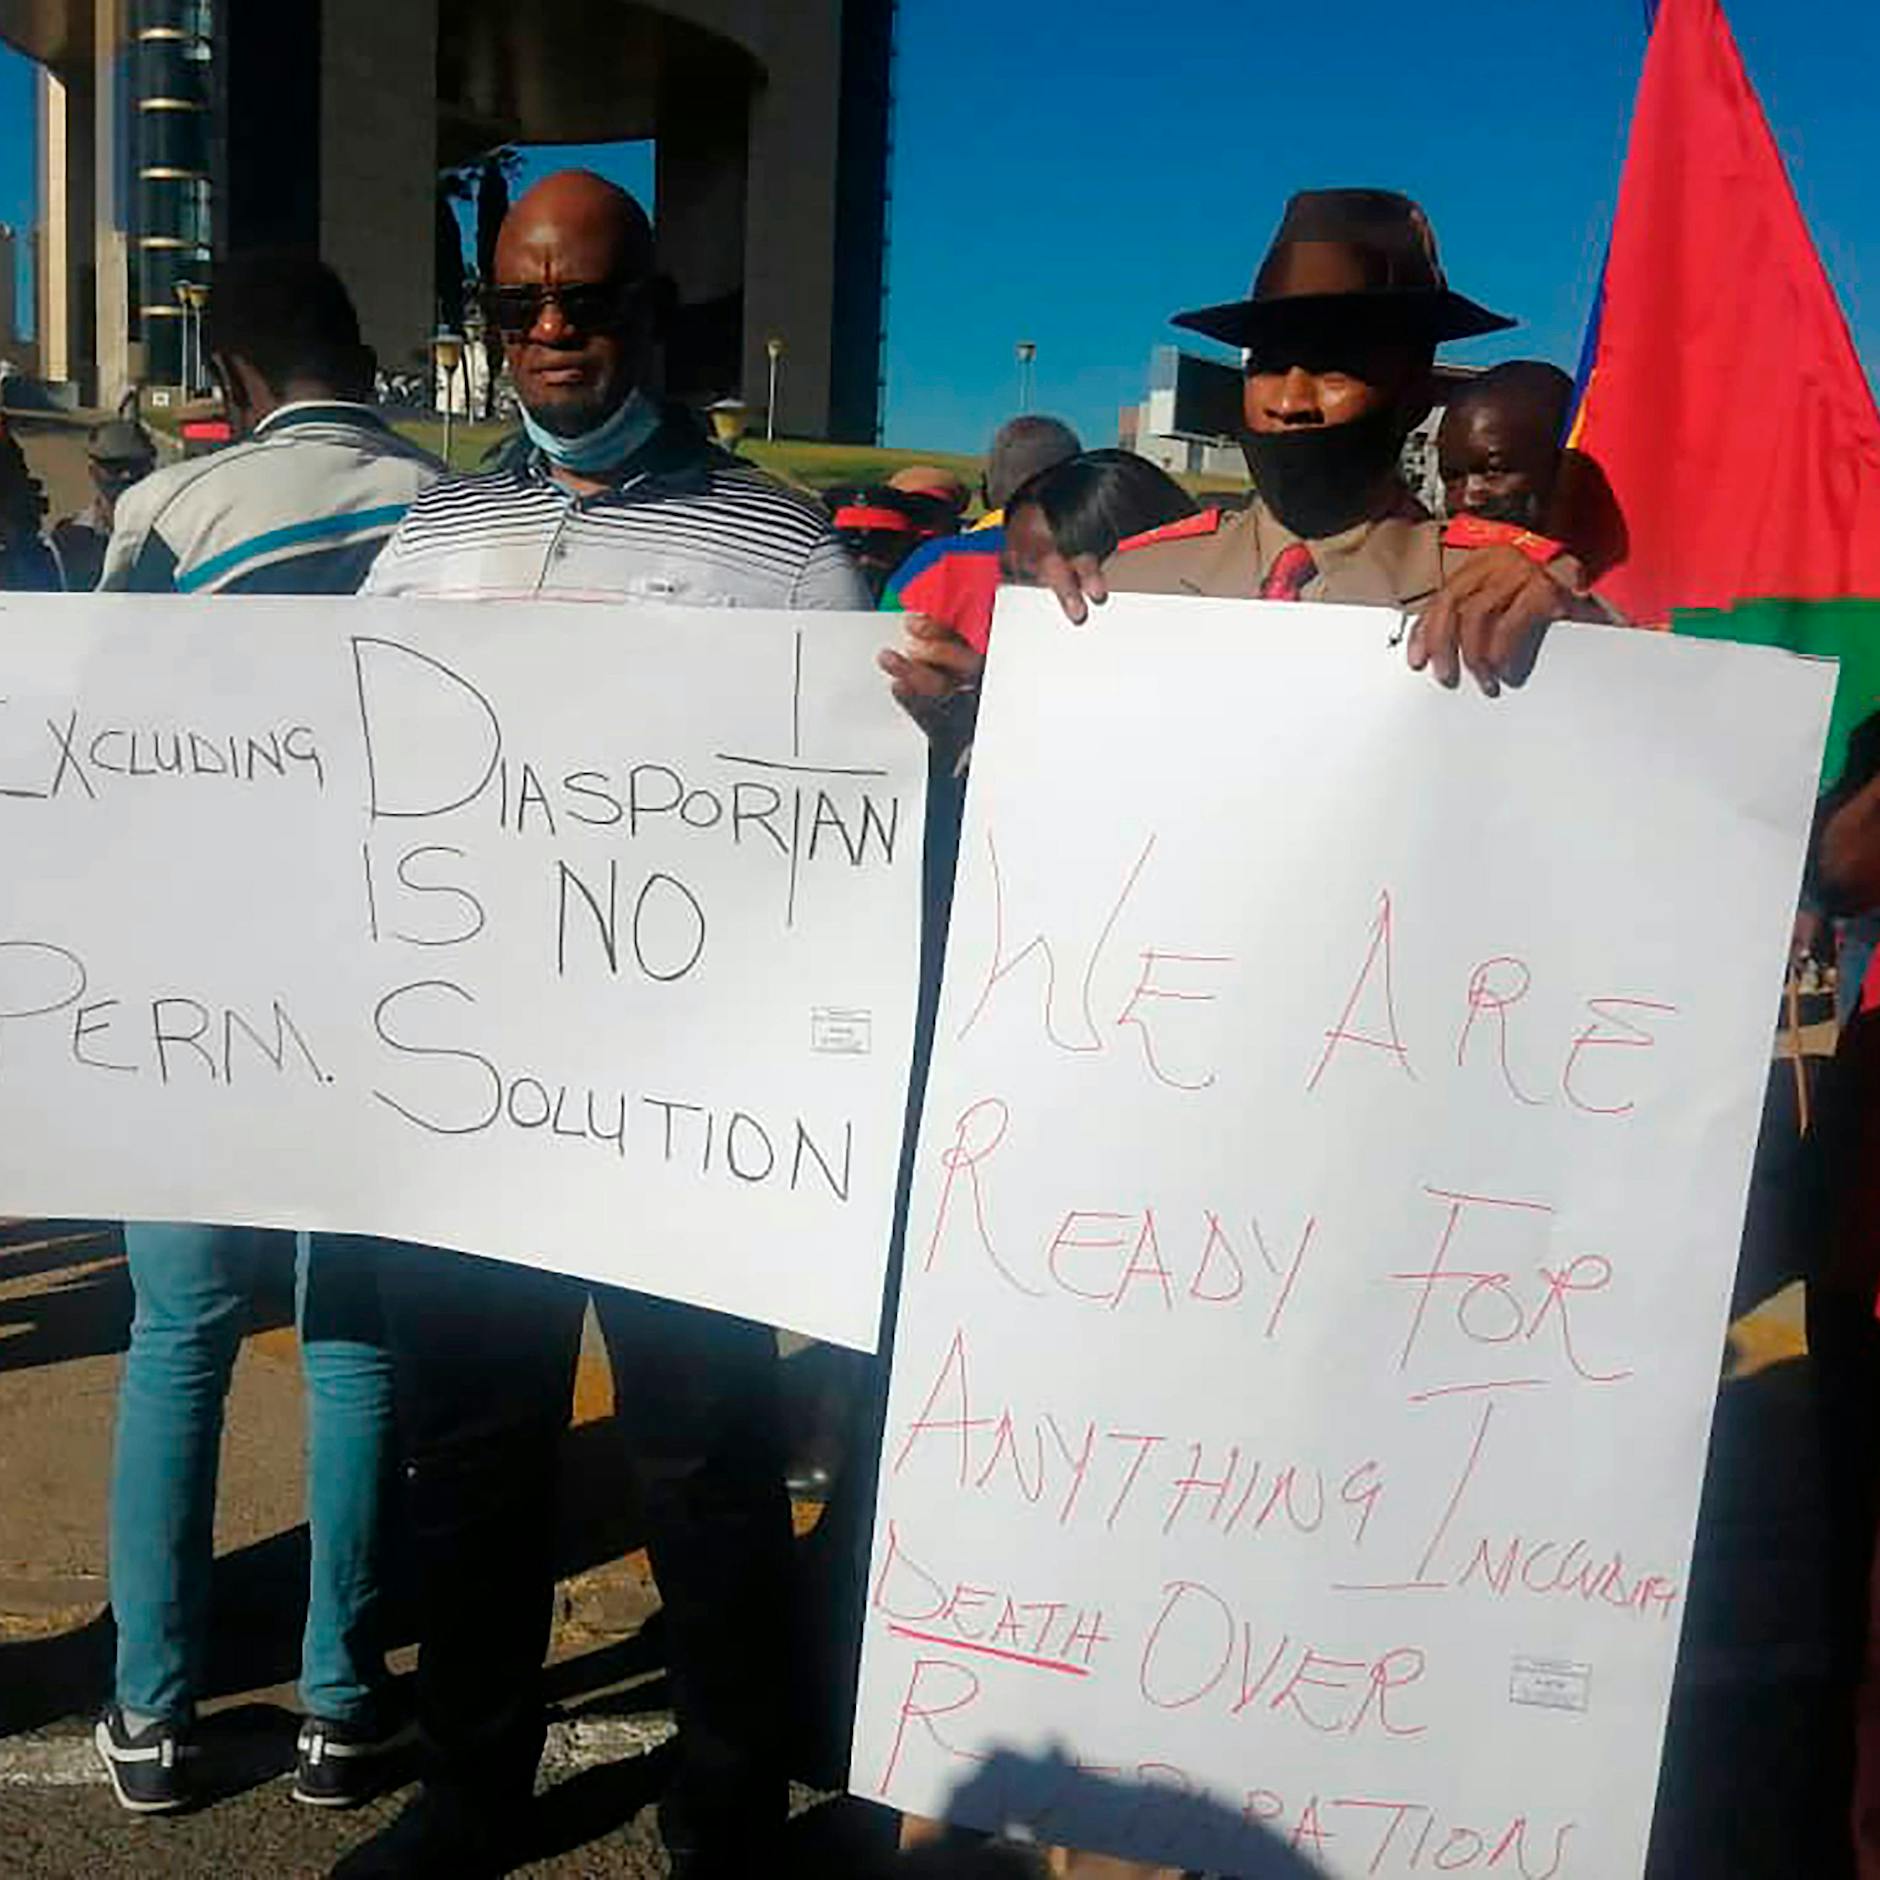 EXCLUDING DIASPORIAN
IS NO
PERM. SOLUTION
WE ARE
READY FOR
ANYTHING INCLUDING
DEATH OVER
REPARATIONS